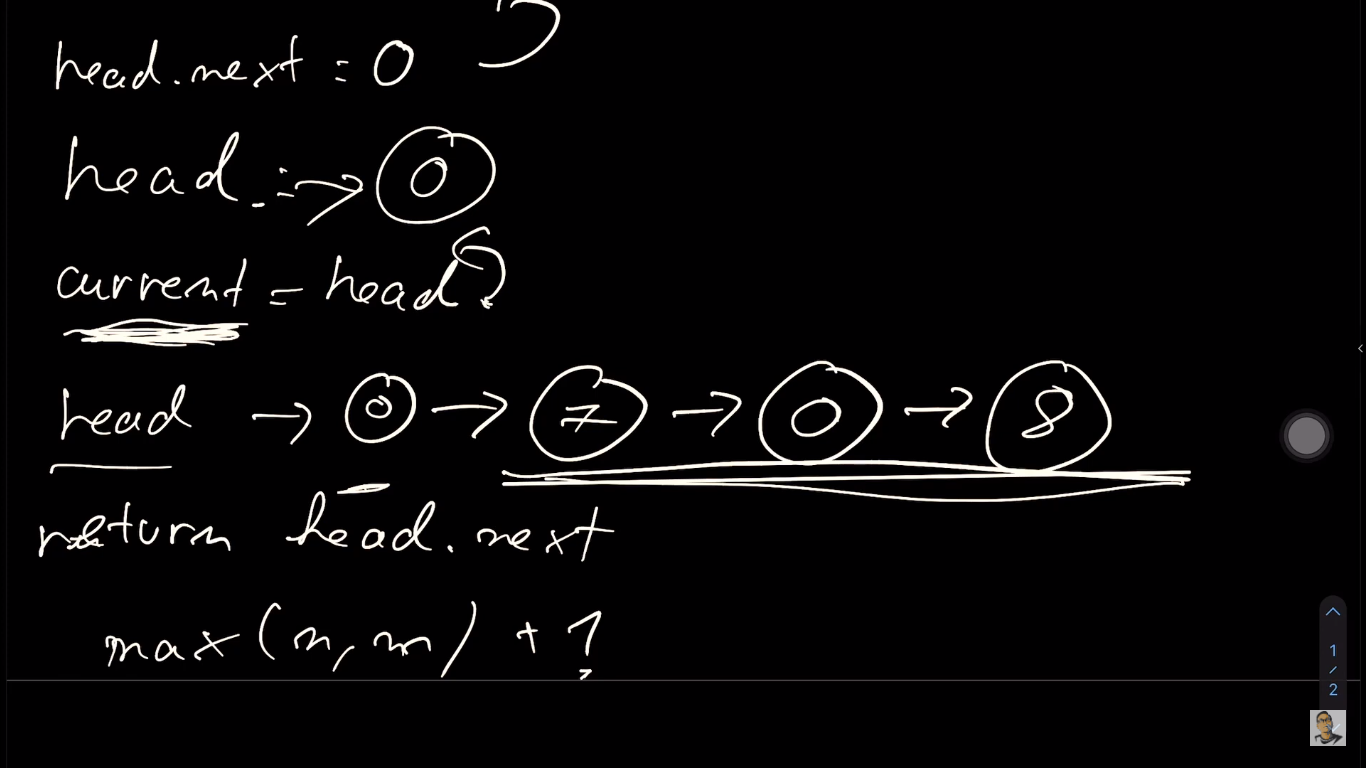 head.next = 0
head = → 0
current = head
head → 0 → 7 → 0 → 8
return head.next
max(n, m) + 1
1
/
2